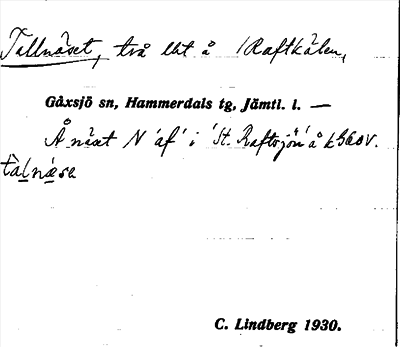 Tallnäset, två lht å Raftkälen,
Gåxsjö sn, Hammerdals tg, Jämtl. l. —
Å näset N 'af' i 'St. Raftsjön' å k
talnǽse
C. Lindberg 1930.